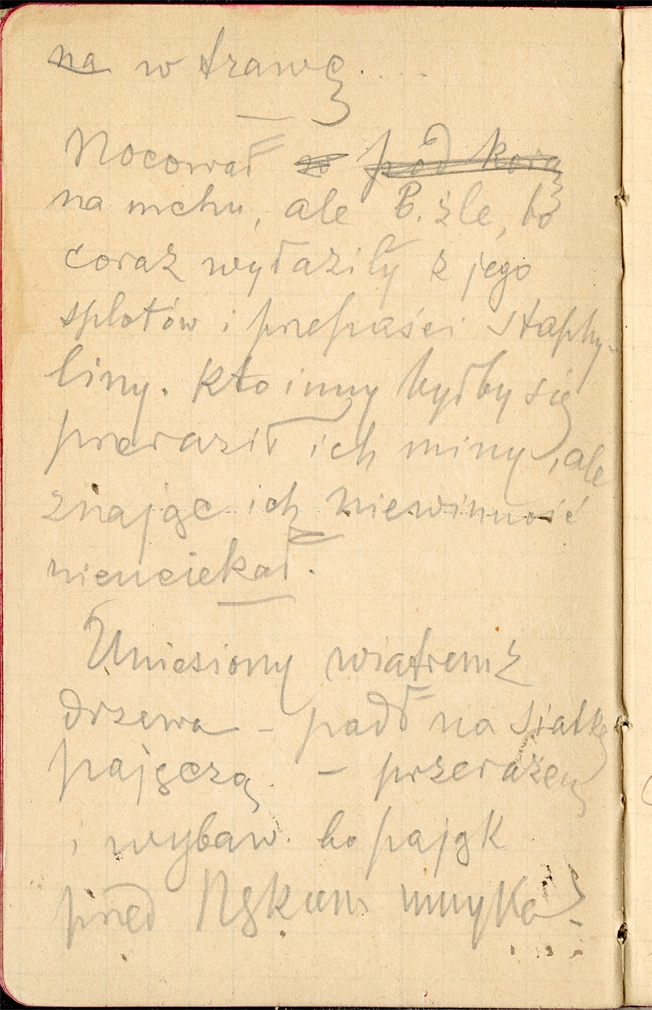 na w trawę.
Nocował w pod korą
na mchu, ale B. źle, bo
coraz wyłaziły z jego
splotów i przepaści Staphy-
liny. Kto inny byłby się
przeraził ich miny, ale
znając ich niewinność
nieuciekał.
Uniesiony wiatrem z
drzewa – padł na siatkę
pajęczą – przerażen
i wybaw. bo pająk
przed umyka